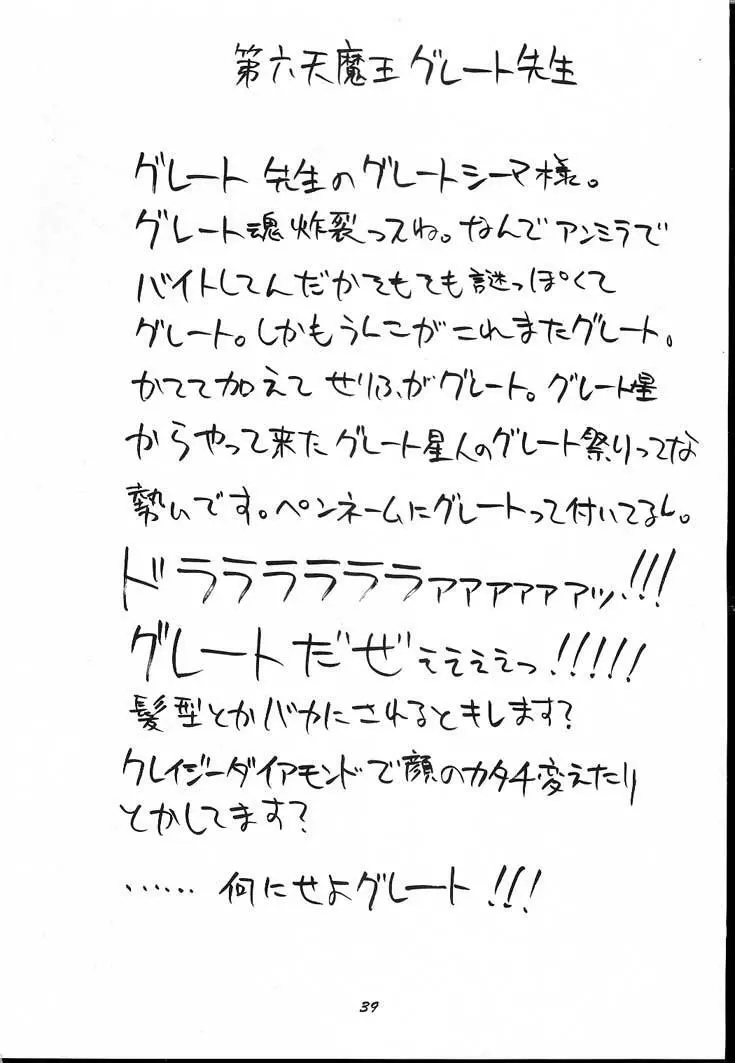 第六天魔王グレート先生
グレート先生のグレートシーマ様。
グレート魂炸裂っスね。なんでアンミラで
バイトしてんだかそもそも謎っぽくて
グレート。しかもうんこがこれまたグレート。
かてて加えてせりふがグレート。グレート星
からやって来たグレート星人のグレート祭りってな
勢いです。ペンネームにグレートって付いてるし。
ドララララララァァァァァァッ!!!
グレートだぜぇぇぇぇっ!!!!!
髪型とかバカにされるとキレます?
クレイジーダイアモンドで顔のカタチ変えたり
とかしてます?
……何にせよグレート!!!
39